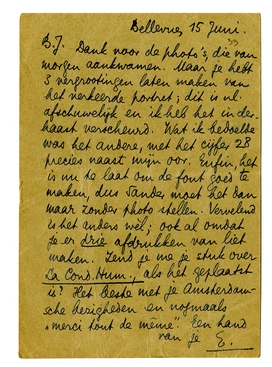 Bellevue, 15 Juni.
33
B.J. Dank voor de photo's, die van
morgen aankwamen. Maar je hebt
3 vergrootingen laten maken van
het verkeerde portret; dit is nl.
afschuwelijk en ik heb het in der
haast verscheurd. Wat ik bedoelde
was het andere, met het cijfer 28
precies naast mijn oor. Enfin, het
is nu te laat om de fout goed te
maken, dus Vander moet het dan
maar zonder photo stellen. Vervelend
is het anders wel; ook al omdat
je er drie afdrukken van liet
maken. Zend je me je stuk over
La Cond. Hum., als het geplaatst
is? Het beste met je Amsterdam-
sche bezigheden en nogmaals
"merci tout de même". Een hand
van je E.